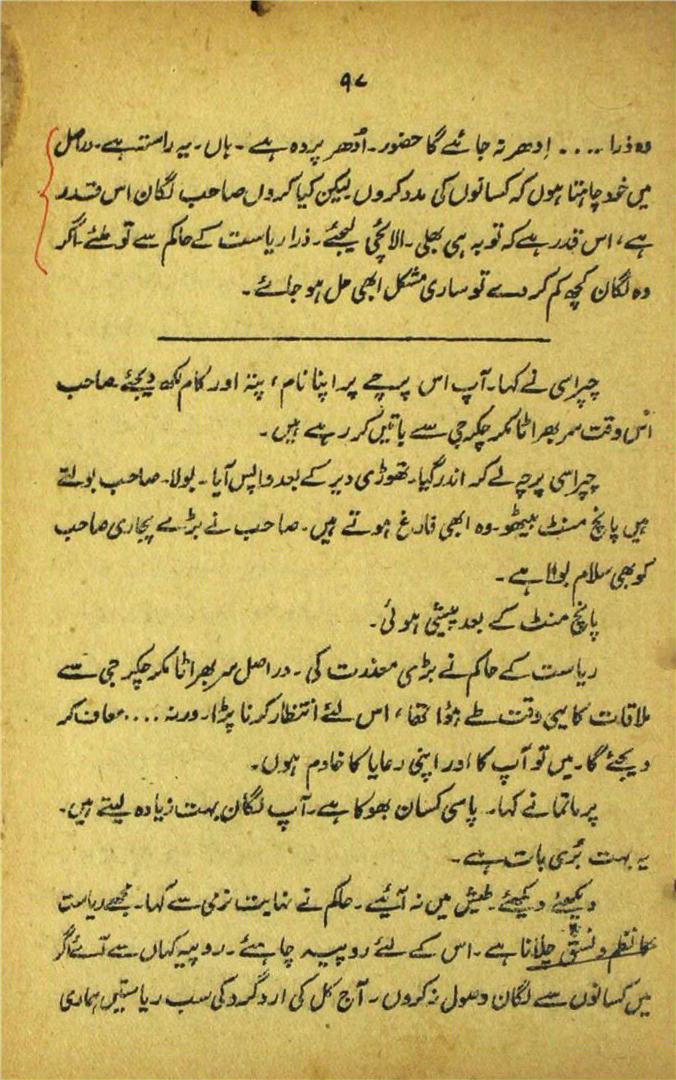 ۹۷
وہ ذرا .... اِدھر نہ جائیے گا حضور۔ اُدھر پردہ ہے۔ ہاں۔ یہ راستہ ہے۔ دراصل
میں خود چاہتا ہوں کہ کسانوں کی مدد کروں لیکن کیا کروں صاحب لگان اس قدر
ہے، اس قدر ہے کہ توبہ ہی بھلی۔ الائچی لیجئے۔ ذرا ریاست کے حاکم سے تو ملئے۔ اگر
وہ لگان کچھ کم کر دے تو ساری مشکل ابھی حل ہو جائے۔
چپراسی نے کہا۔ آپ اس پرچے پر اپنا نام، پتہ اور کام لکھ دیجئے۔ صاحب
اُس وقت سر بھراٹا مکر چکر جی سے باتیں کر رہے ہیں۔
چپراسی پرچہ لے کر اندر گیا۔ تھوڑی دیر کے بعد واپس آیا۔ بولا۔ صاحب بولتے
ہیں پانچ منٹ بیٹھو۔ وہ ابھی فارغ ہوتے ہیں۔ صاحب نے بڑے پجاری صاحب
کو بھی سلام بولا ہے۔
پانچ منٹ کے بعد پیشی ہوئی۔
ریاست کے حاکم نے بڑی معذرت کی۔ دراصل سر بھراٹا مکر چکر جی سے
ملاقات کا یہی وقت طے ہوا تھا، اس لئے انتظار کرنا پڑا۔ ورنہ .... معاف کر
دیجئے گا۔ میں تو آپ کا اور اپنی رعایا کا خادم ہوں۔
پرماتما نے کہا۔ پاسی کسان بھوکا ہے۔ آپ لگان بہت زیادہ لیتے ہیں۔
یہ بہت بُری بات ہے۔
دیکھئے دیکھئے۔ طیش میں نہ آئیے۔ حاکم نے نہایت نرمی سے کہا۔ مجھے ریاست
کا نظم و نسق چلانا ہے۔ اس کے لئے روپیہ چاہئے۔ روپیہ کہاں سے آئے اگر
میں کسانوں سے لگان وصول نہ کروں۔ آج کل کی ارد گرد کی سب ریاستیں ہماری